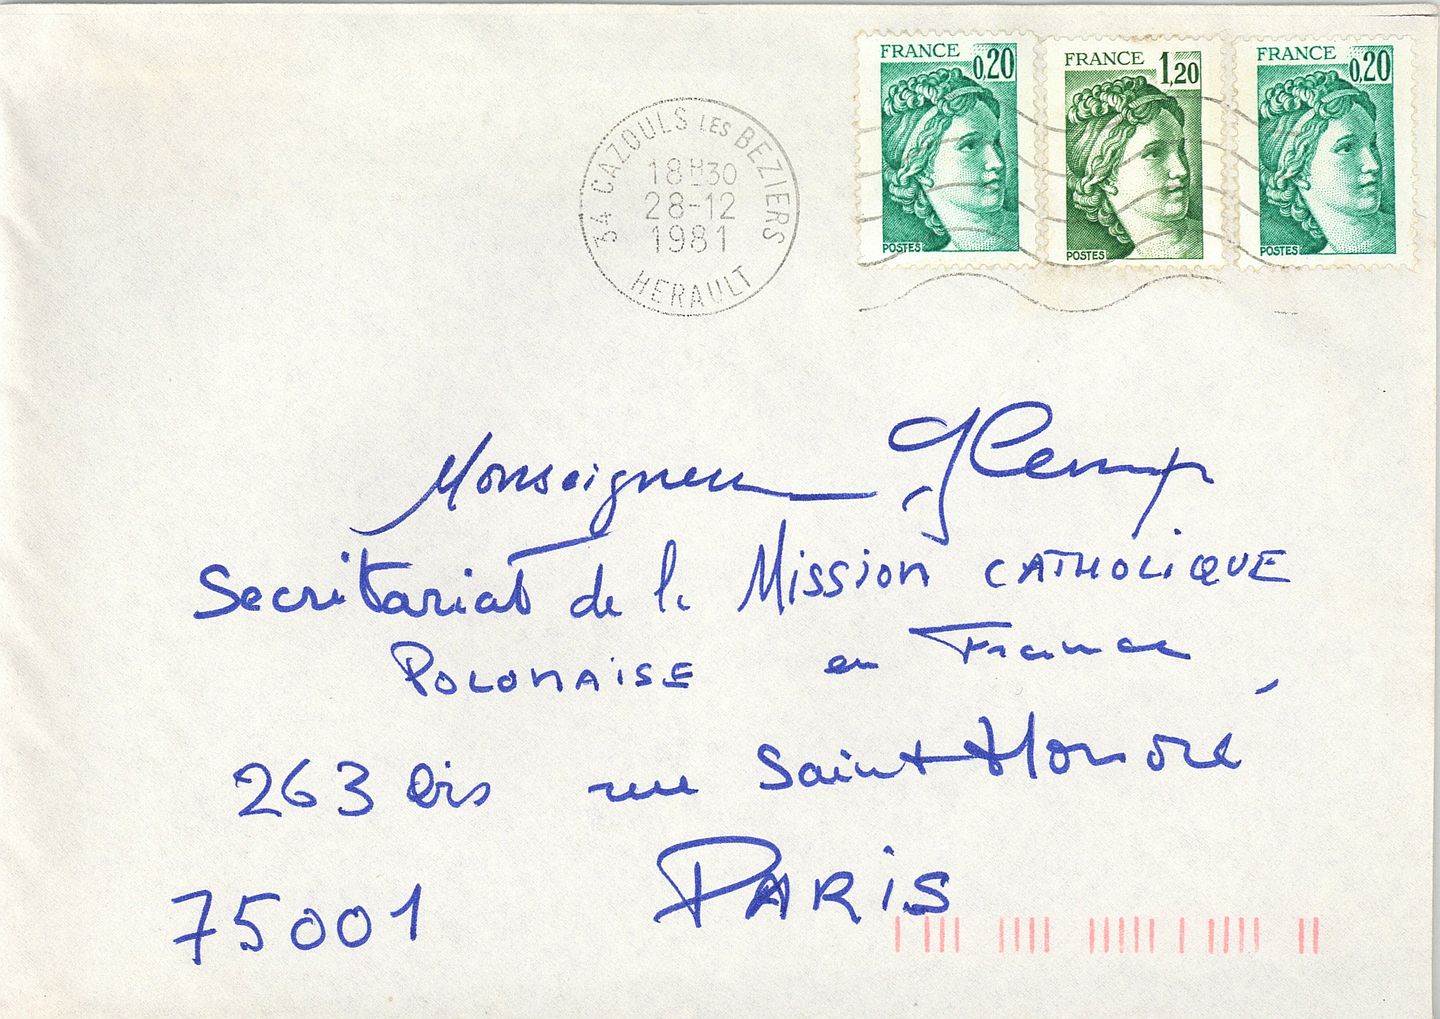 FRANCE 0,20
POSTES
FRANCE 1,20
POSTES
FRANCE 0,20
POSTES
34 CAZOULS LES BEZIERS
18H30
28-12
1981
HERAULT
Monseigneur Glemp
Secrétariat de la Mission CATHOLIQUE
POLONAISE en France
263 bis rue Saint-Honoré
75001 PARIS